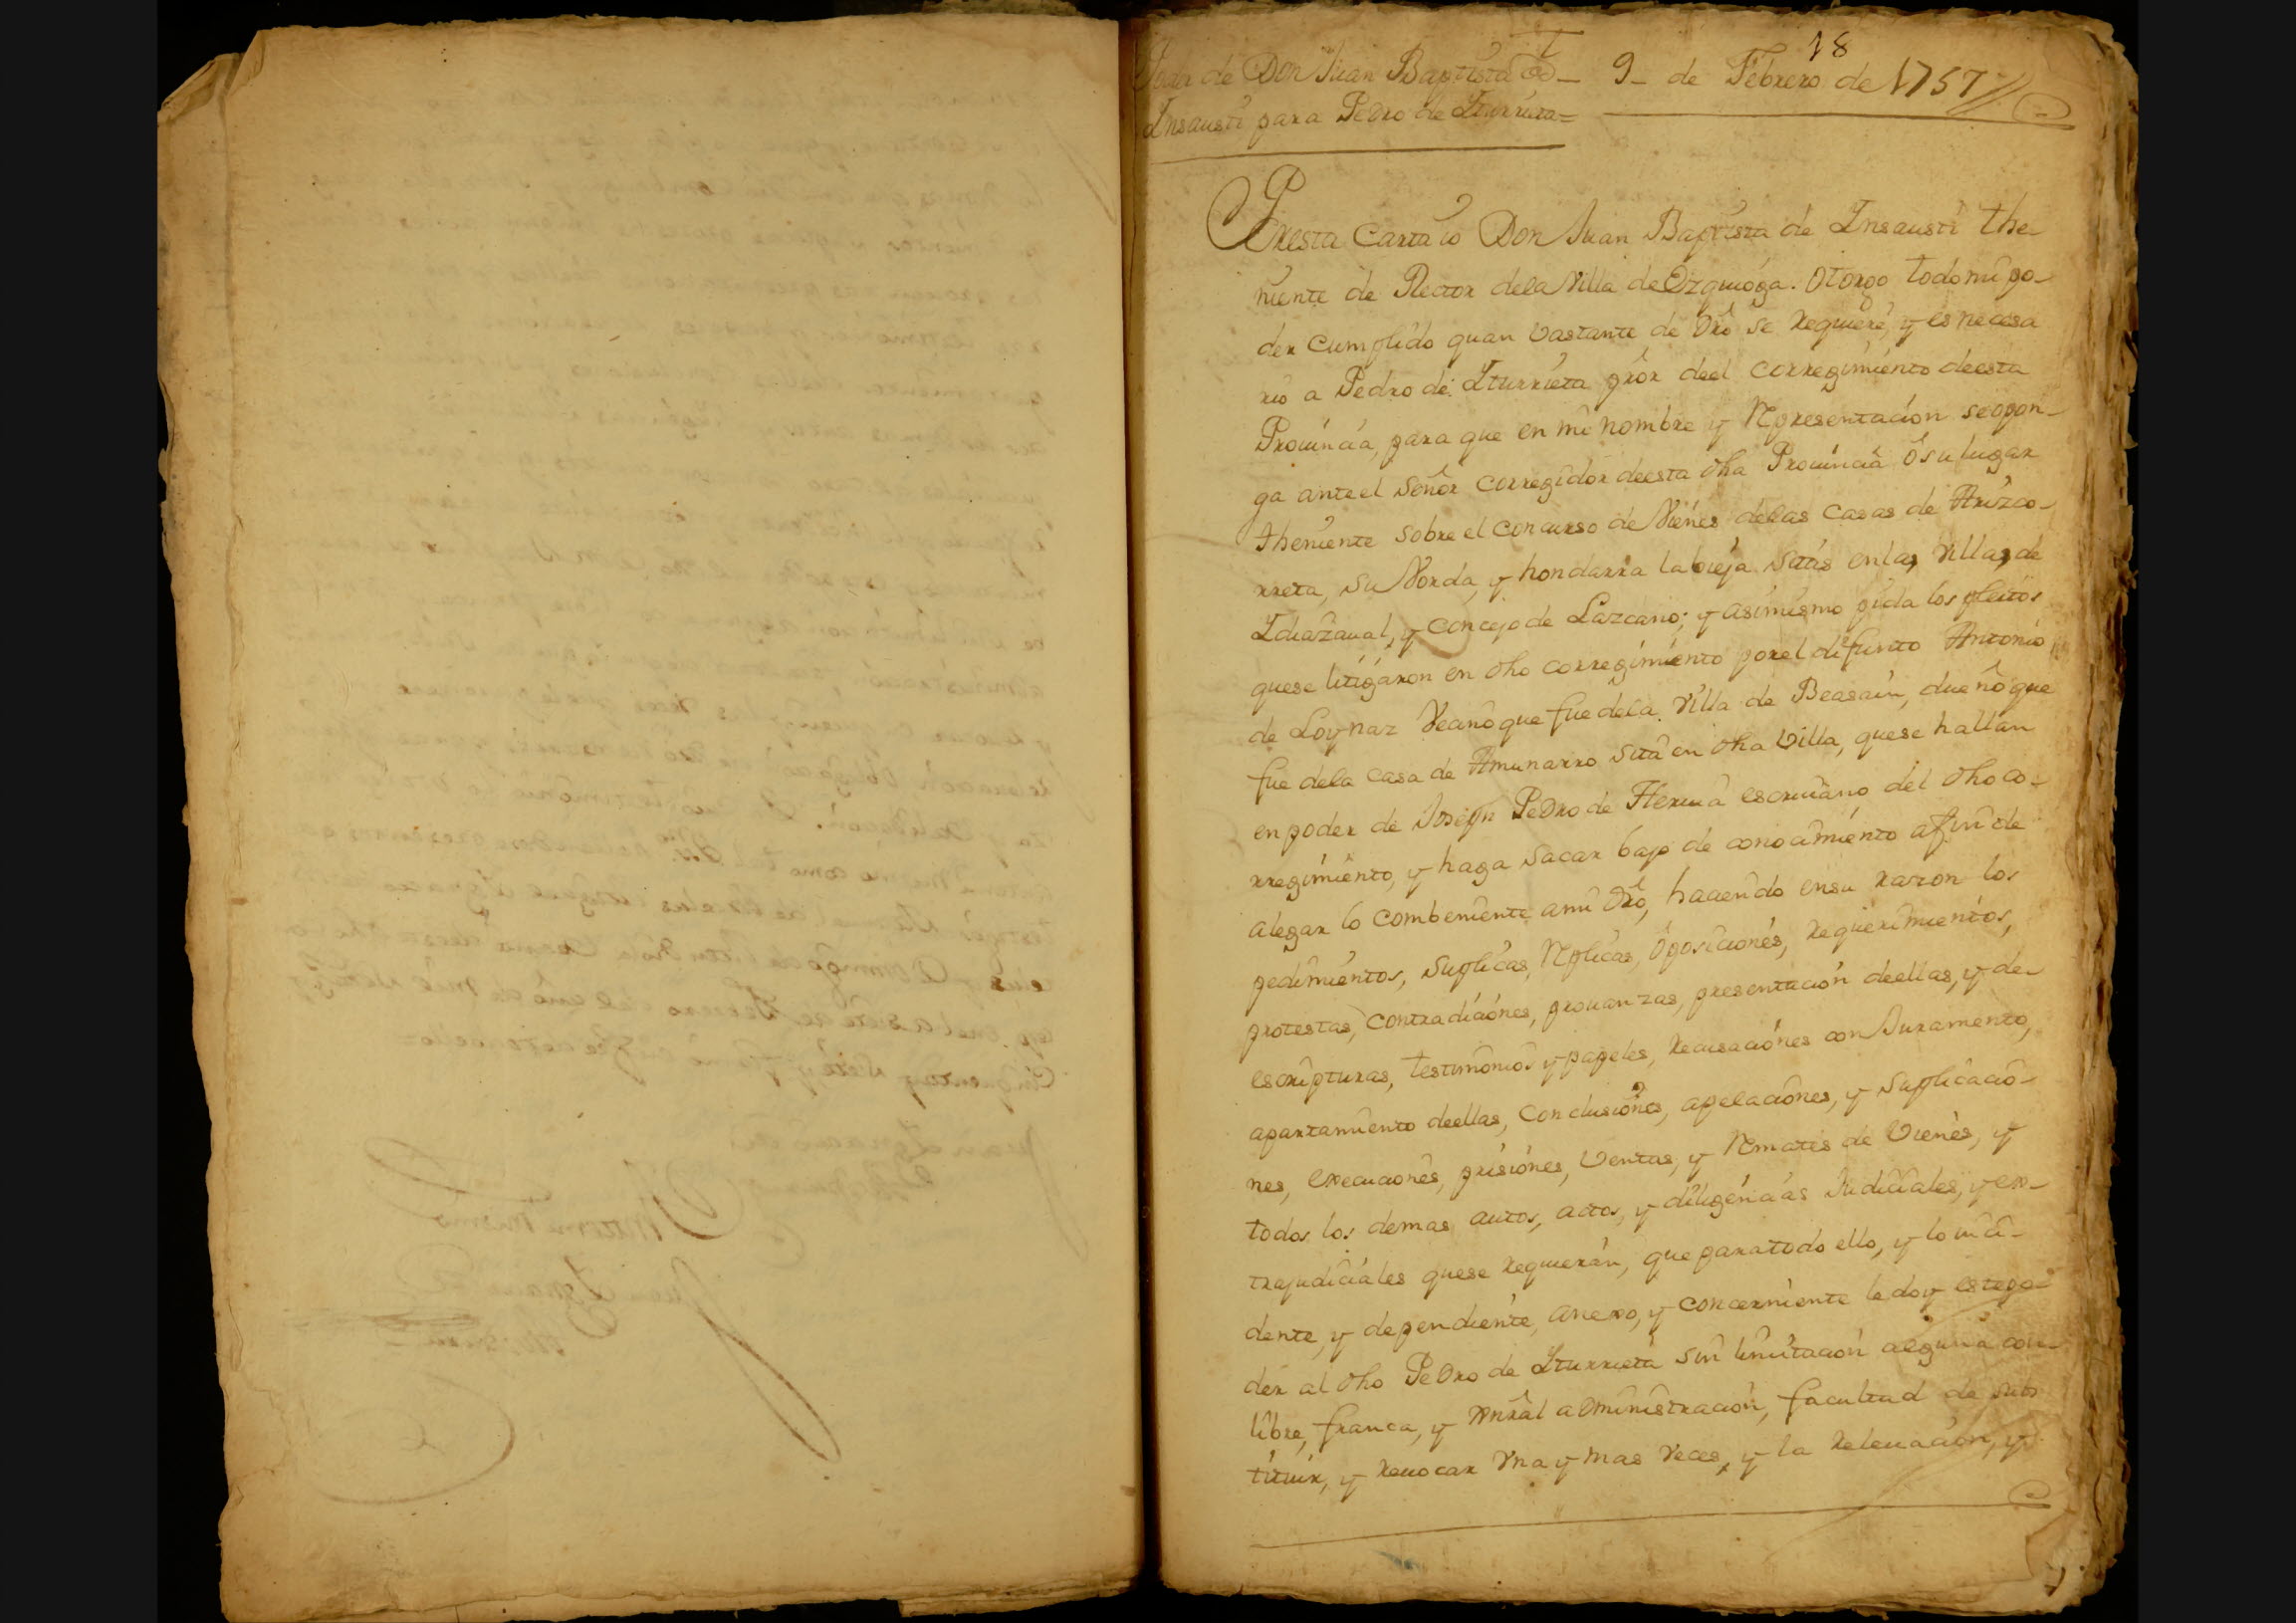 18
Poder de Don Juan Baptista de
Insausti para Pedro de Iturrieta=
9- de Febrero de 1757//
Pr esta carta io Don Juan Baptista de Insausti the-
niente de Rector dela Villa de Ezquioga. Otorgo todo mi po-
der cumplido quan vastante de dro se requiere, y es necesa
rio a Pedro de Iturrieta prôr deel corregimiento deesta
Prouincia, para que en mi nombre y Rpresentacion se opon-
ga ante el señor corregidor deesta dha Prouincia ó su lugar
theniente sobre el concurso de Vienes delas casas de Arizco-
rreta, su Vorda, y hondarra la bieja sitas en las Villas de
Idiazaual, y concejo de Lazcano; y asimismo pida los pleitos
quese litigaron en dho corregimiento por el difunto Antonio
de Loynaz Vecino que fue dela Villa de Beasain, dueño que
fue dela casa de Amunarro sita en dha Villa, quese hallan
en poder de Joseph Pedro de escriuano del dho co-
rregimiento, y haga sacar bajo de conocimiento afin de
alegar lo combeniente a mi dro, haciendo en su razon los
pedimientos, suplicas, Rplicas, Oposiciones, requerimientos,
protestas, contradiciones, prouanzas, presentacion deellas, y de
escripturas, testimonios y papeles, recusaciones con Juramento,
apartamiento deellas, conclusiones, apelaciones, y suplicacio-
nes, execuciones, prisiones, Ventas, y Rmates de Vienes, y
todos los demas autos, actos, y diligencias Judiciales, y ex-
trajudiciales quese requieran, que para todo ello, y lo inci-
dente, y dependiente, anexo, y concerniente le doy este po-
der al dho Pedro de Iturrieta sin limitacion alguna con
libre, franca, y gnral administracion, facultad de subs
tituir, y reuocar Vna y mas Veces, y la releuacion, y